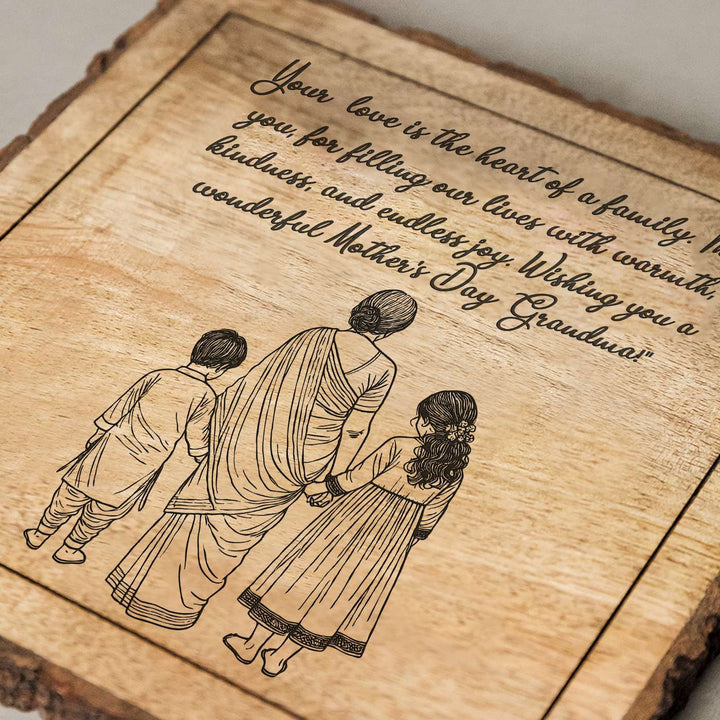 Your love is the heart of a family.
you, for filling our lives with warmth,
kindness, and endless joy. Wishing you a
wonderful Mother's Day Grandma!"